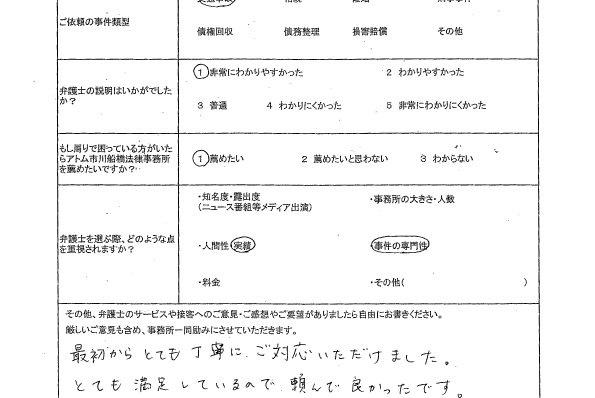 ご依頼の事件類型
債権回収 債務整理 損害賠償 その他
弁護士の説明はいかがでしたか?
1 非常にわかりやすかった 2 わかりやすかった
3 普通 4 わかりにくかった 5 非常にわかりにくかった
もし周りで困っている方がいたらアトム市川船橋法律事務所を薦めたいですか?
1 薦めたい 2 薦めたいと思わない 3 わからない
弁護士を選ぶ際、どのような点を重視されますか?
・知名度・露出度 ・事務所の大きさ・人数
(ニュース番組等メディア出演)
・人間性 実績 事件の専門性
・料金 ・その他( )
その他、弁護士のサービスや接客へのご意見・ご感想やご要望がありましたら自由にお書きください。
厳しいご意見も含め、事務所一同励みにさせていただきます。
最初からとても丁寧にご対応いただけました。
とても満足しているので頼んで良かったです。